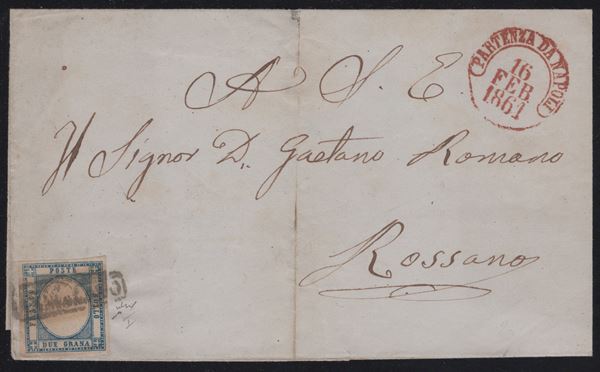 PARTENZA DA NAPOLI
16
FEB
1861
A S. E.
Il Signor D. Gaetano Romano
Rossano
POSTE
FRANCO
BOLLO
DUE GRANA